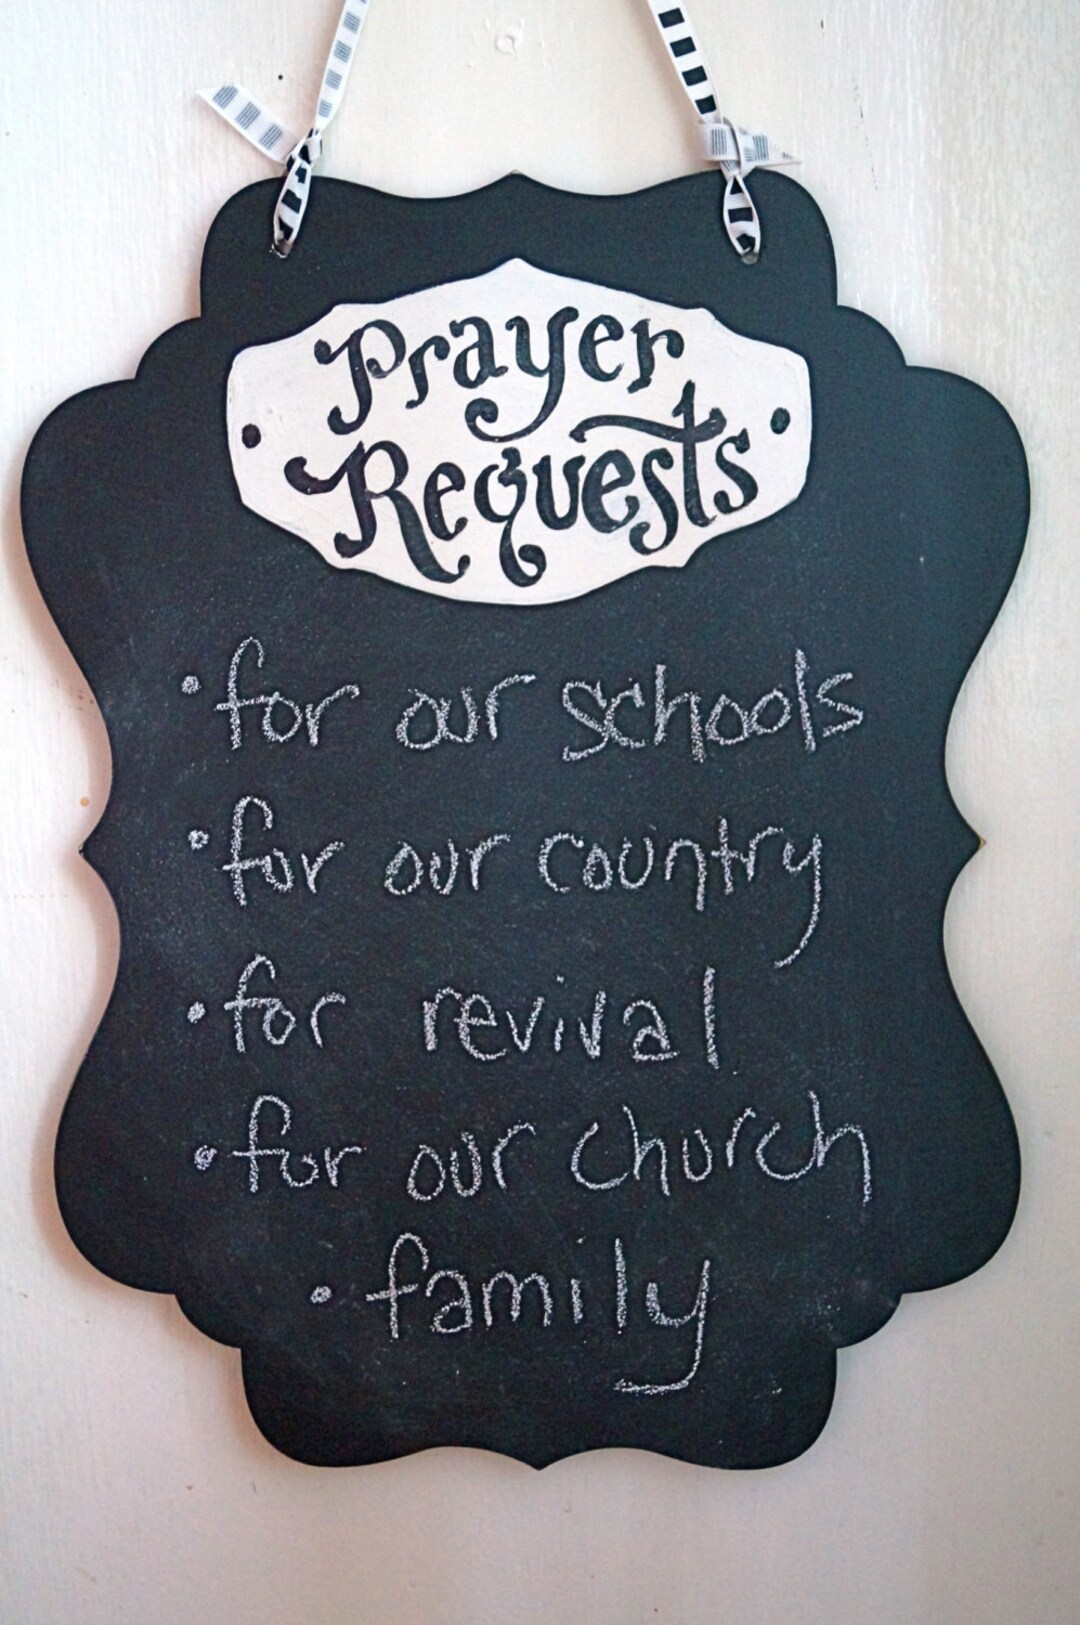 Prayer
Requests
• for our schools
• for our country
• for revival
• for our church
• family